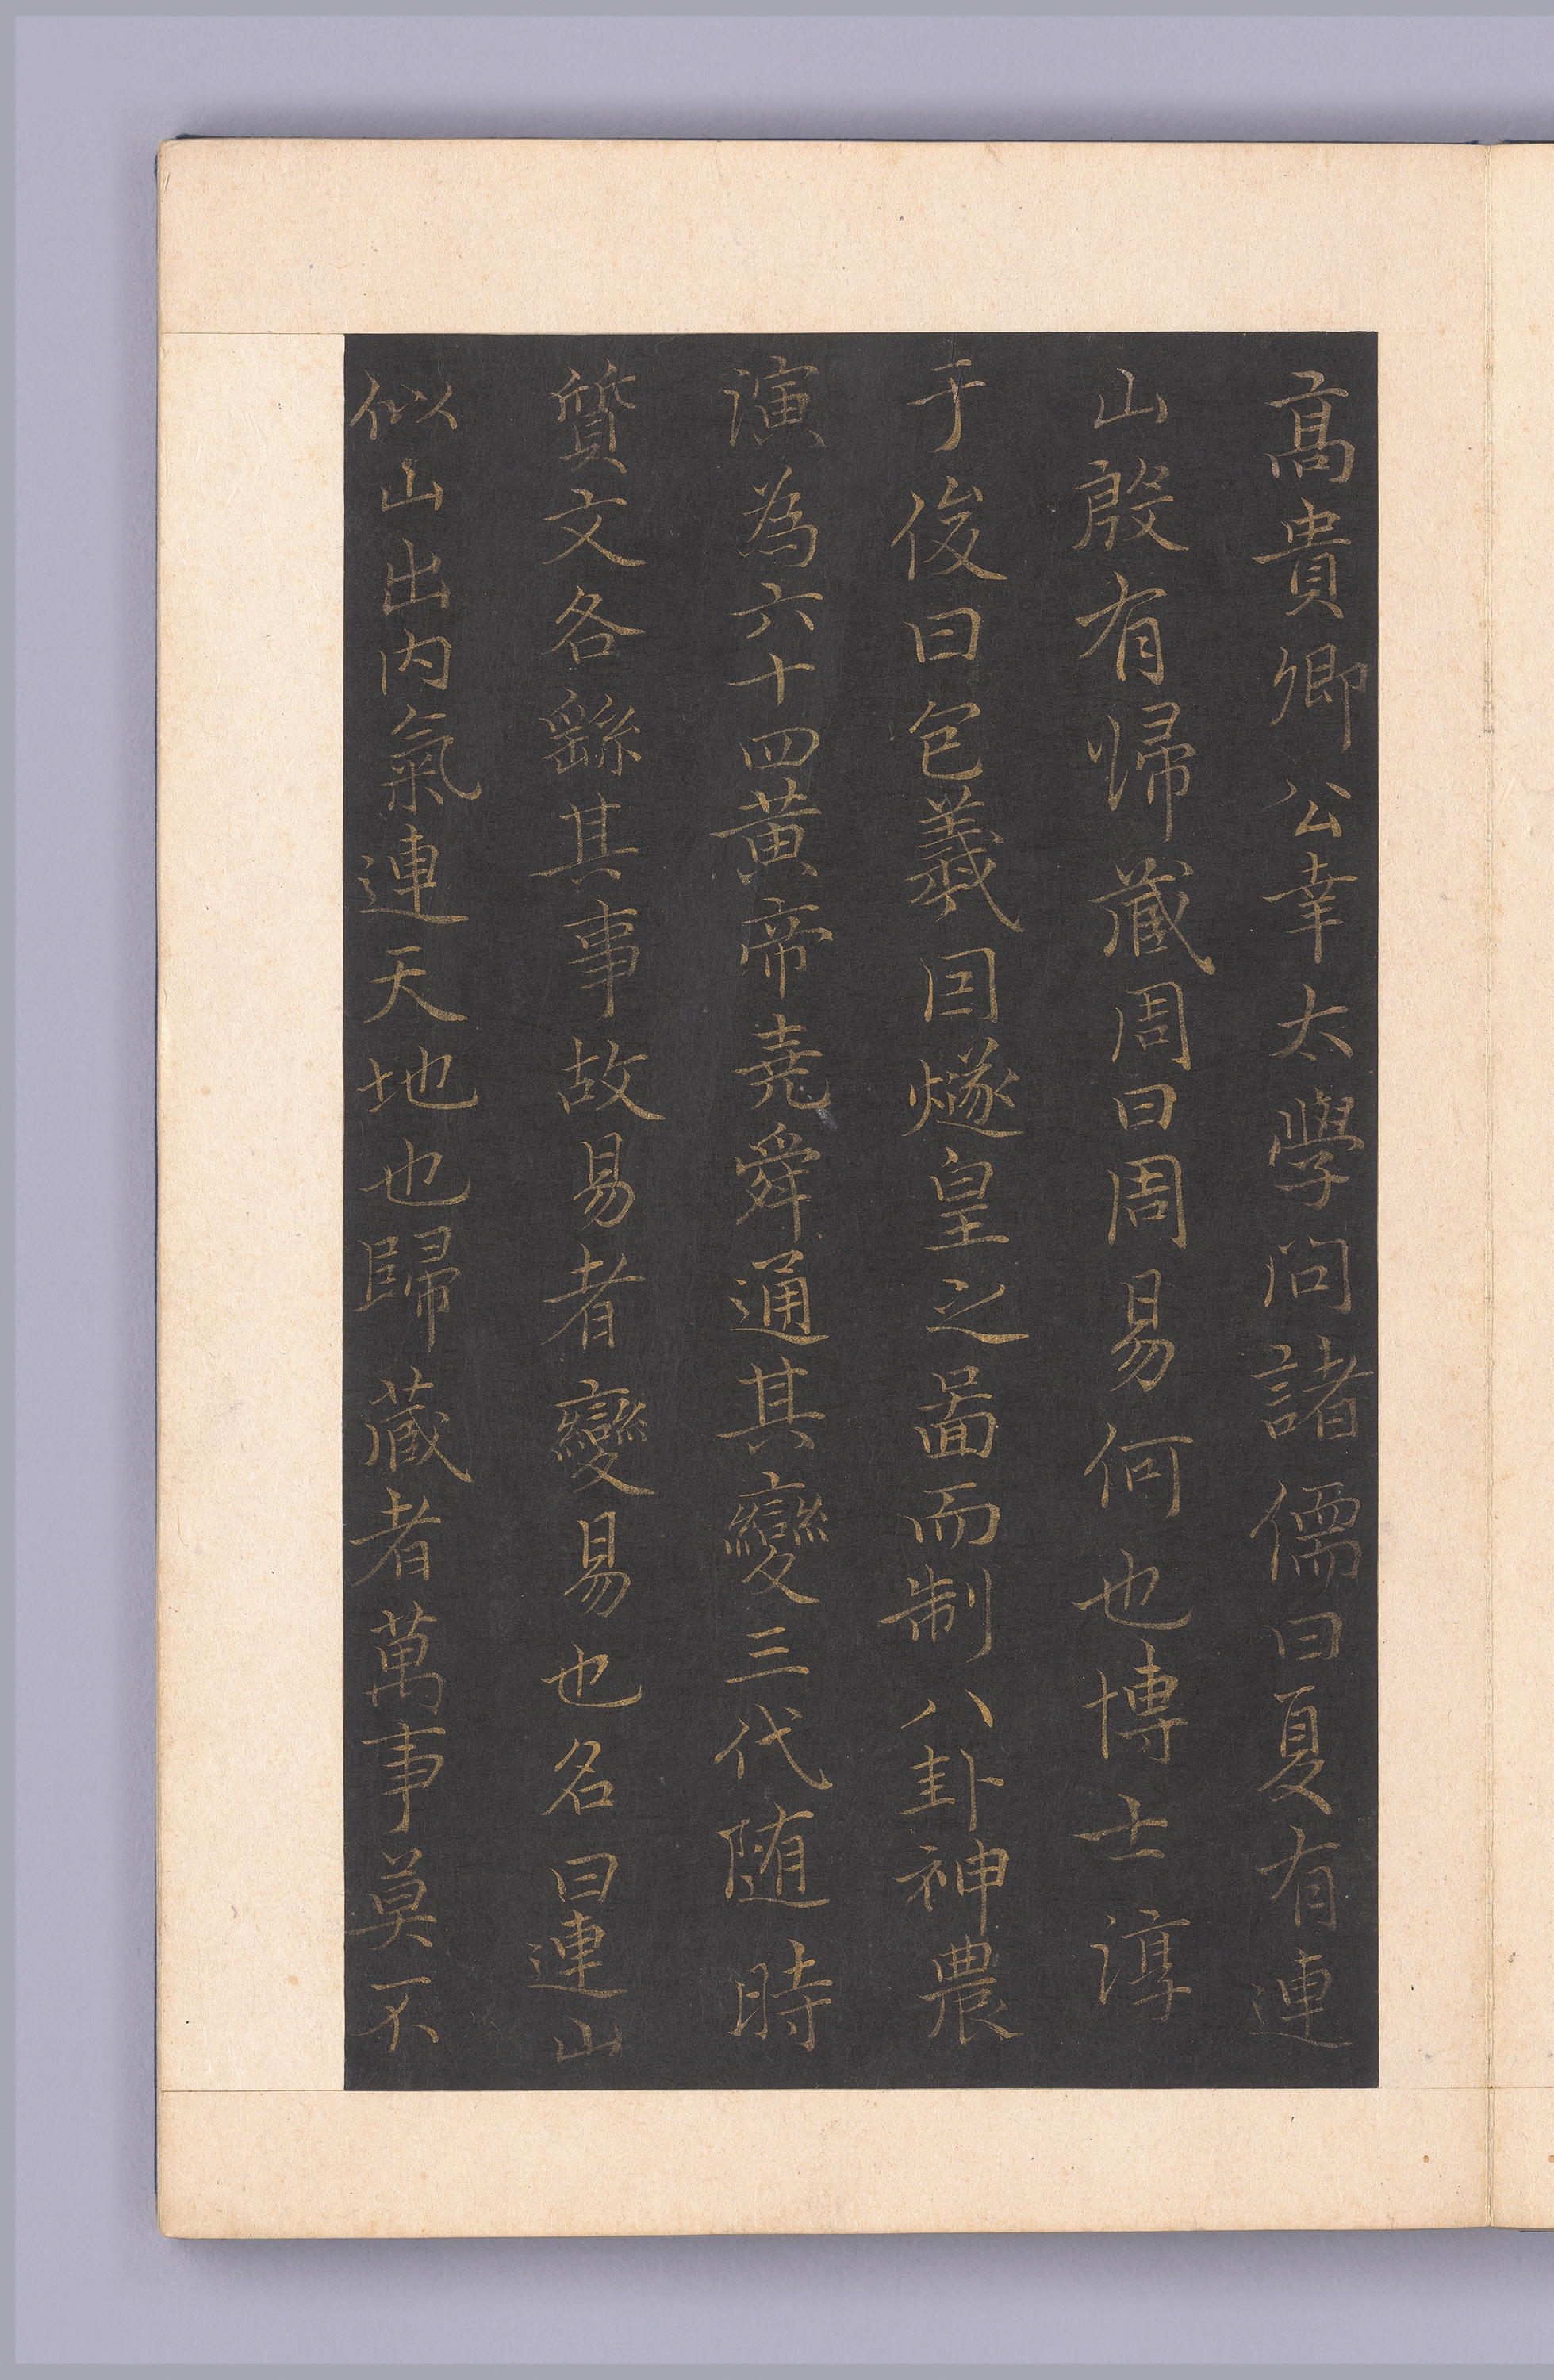 髙貴卿公幸太學問諸儒曰夏有連
山殷有歸藏周曰周易何也博士淳
于俊曰包羲因燧皇之圖而制八卦神農
演為六十四黃帝堯舜通其變三代随時
質文各繇其事故易者變易也名曰連山
似山出内氣連天地也歸藏者萬事莫不